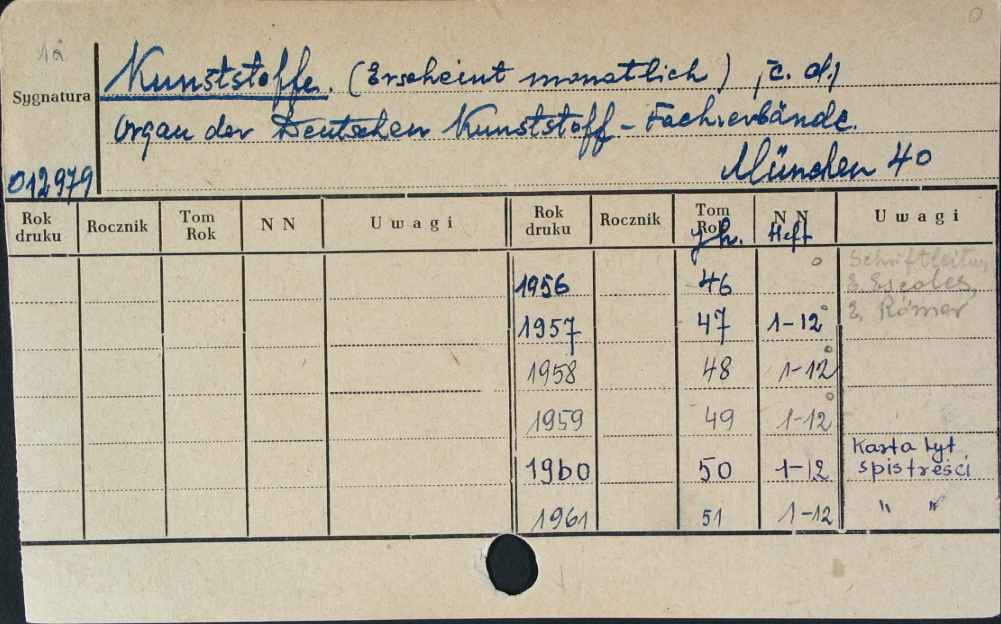 1a
Kunststoffe. (Erscheint monatlich) /c. d./
Sygnatura
Organ der Deutschen Kunststoff-Fachverbände.
012979
München 40
Rok druku Rocznik Tom Rok NN Uwagi Rok druku Rocznik Tom Rok NN Uwagi
Jh. Heft
Schriftleitung
1956 46
1957 47 1-12 E. Römer
1958 48 1-12
1959 49 1-12
Karta tyt
1960 50 1-12 spis treści
1961 51 1-12 " "